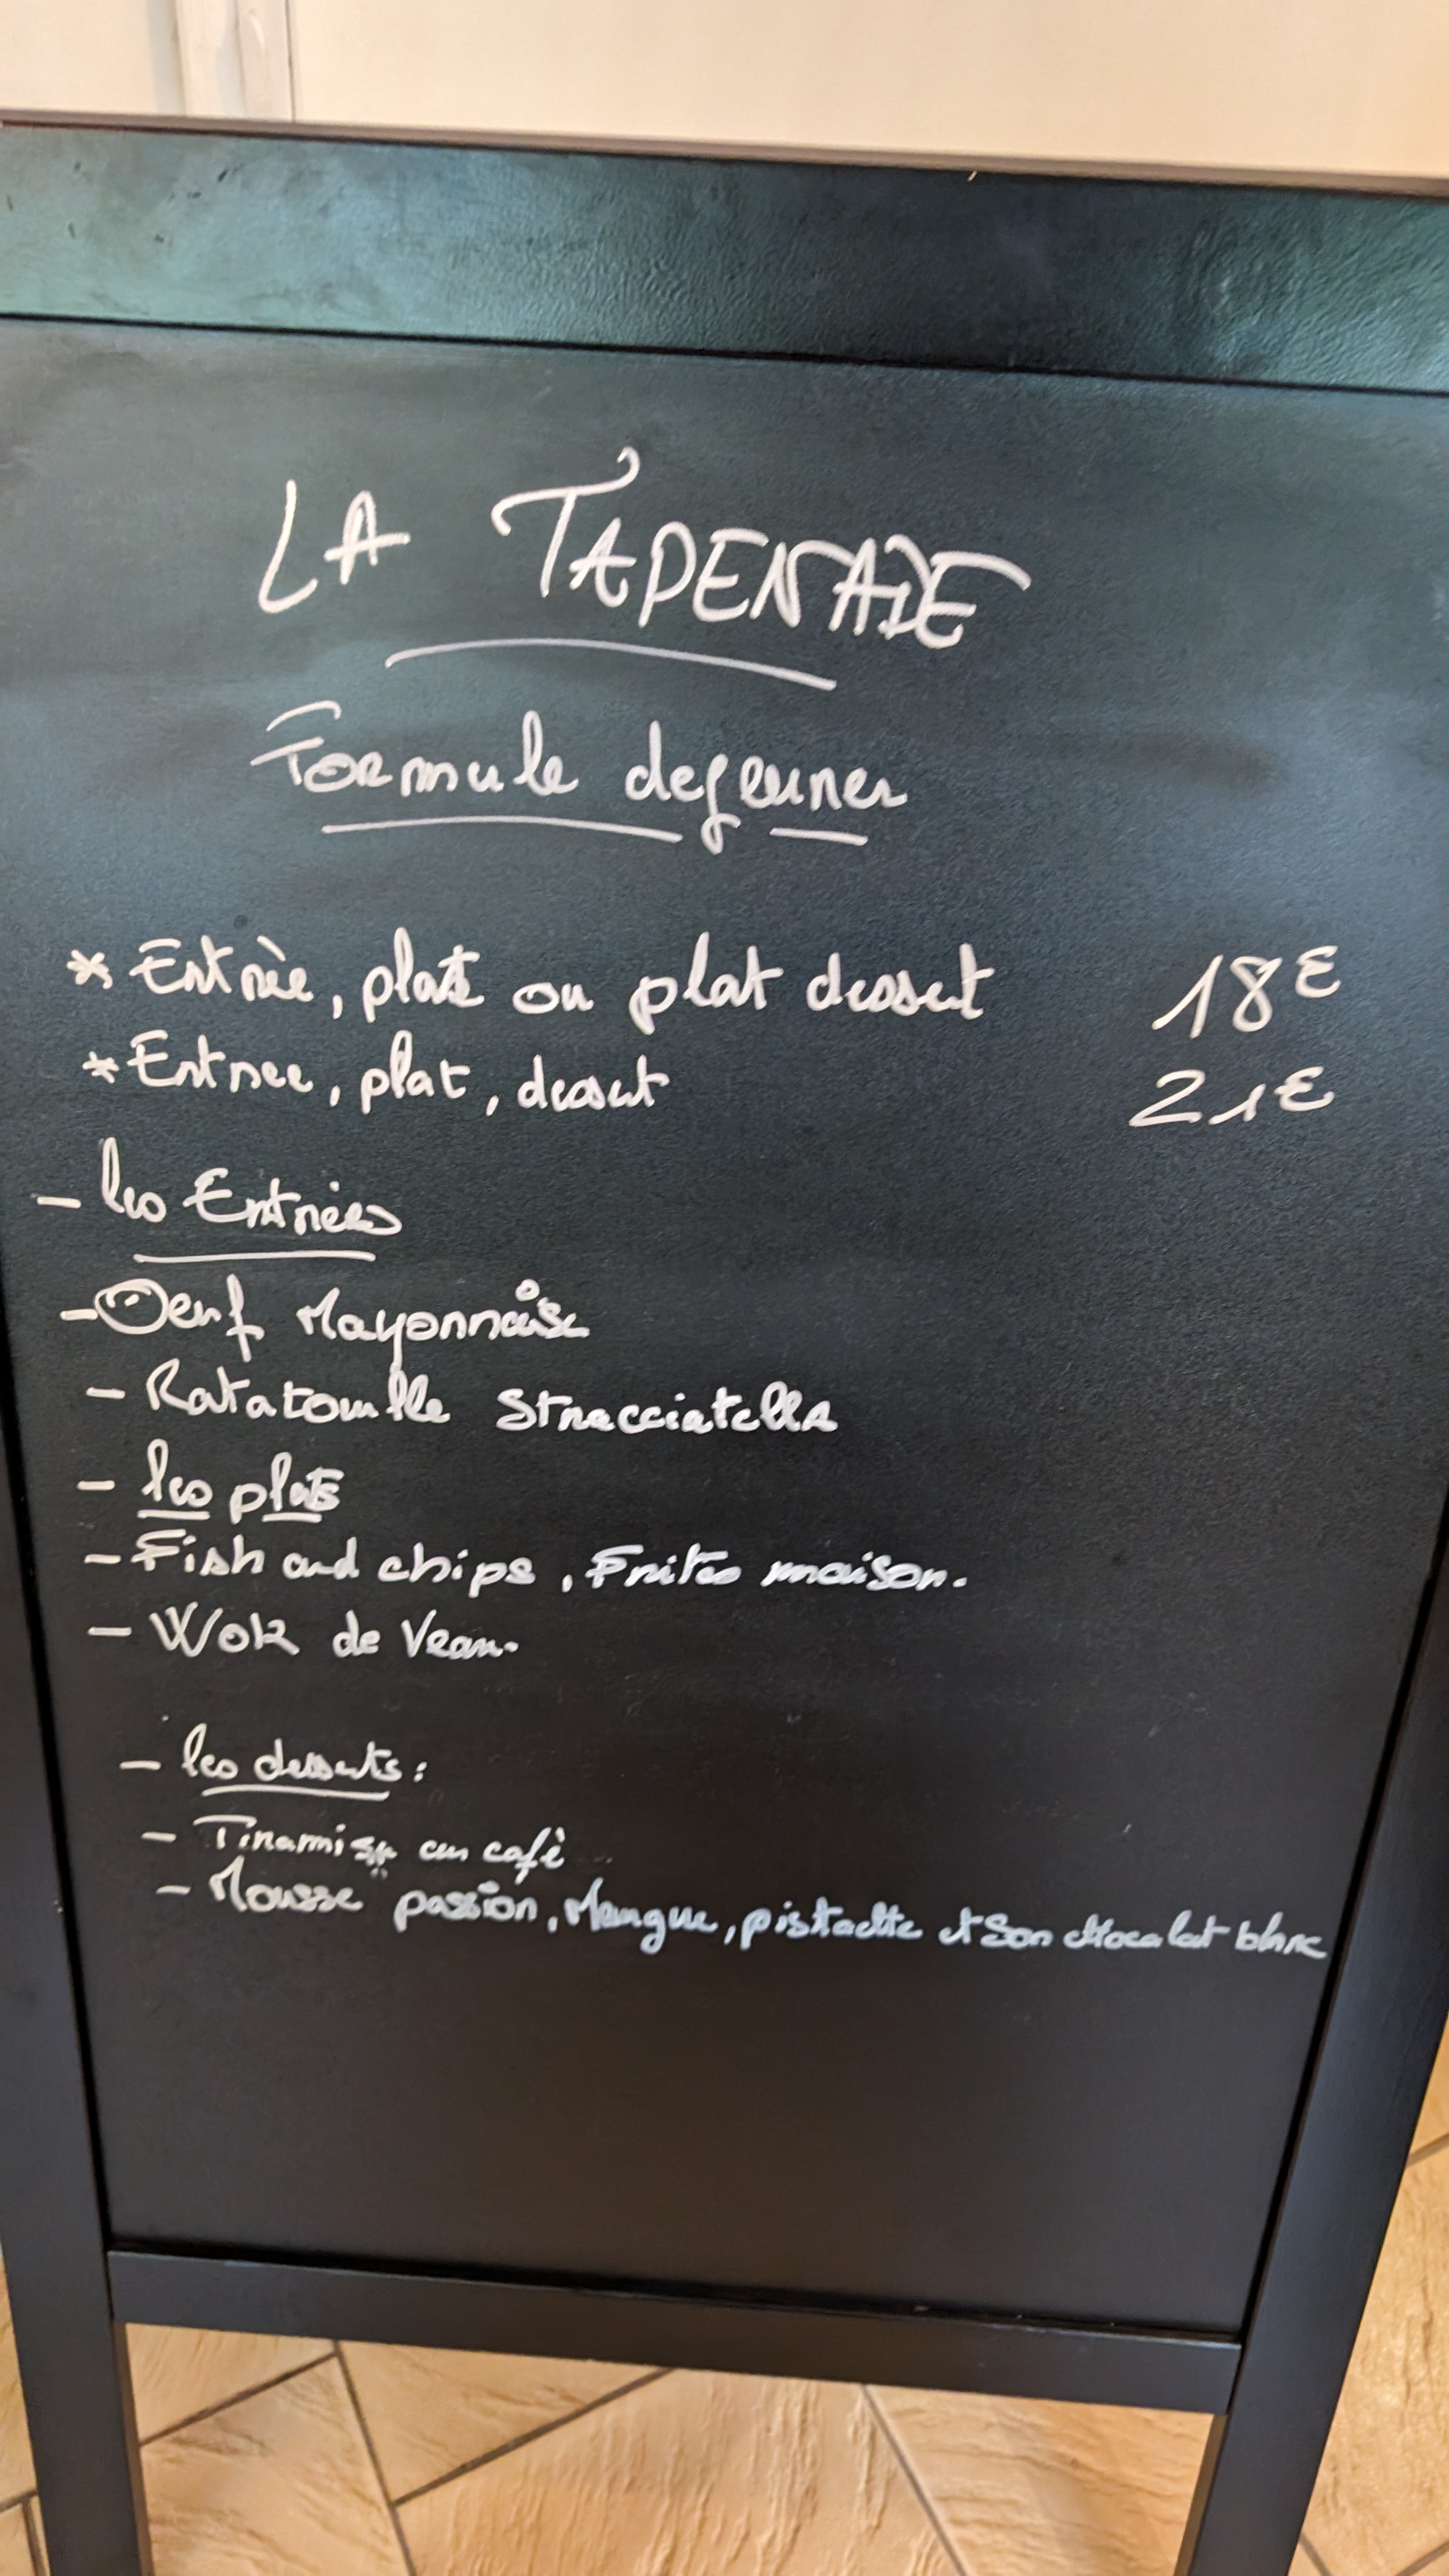 LA TAPENADE
Formule dejeuner
* Entrèe, plat ou plat dessert 18€
* Entree, plat, dessert 21€
- les Entrées
- Oeuf Mayonnaise
- Ratatouille Stracciatella
- les plats
- Fish and chips, Frites maison.
- Wok de Veau.
- les desserts :
- Tiramisu au café
- Mousse passion, Mangue, pistache et son chocolat blanc